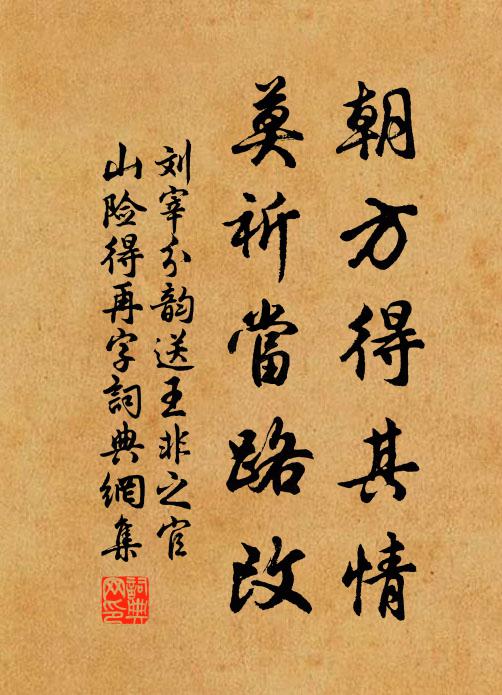 朝方得其情
莫祈當路改
刘宰分韵送王非之官
山险得再字詞典網集
詞典网印